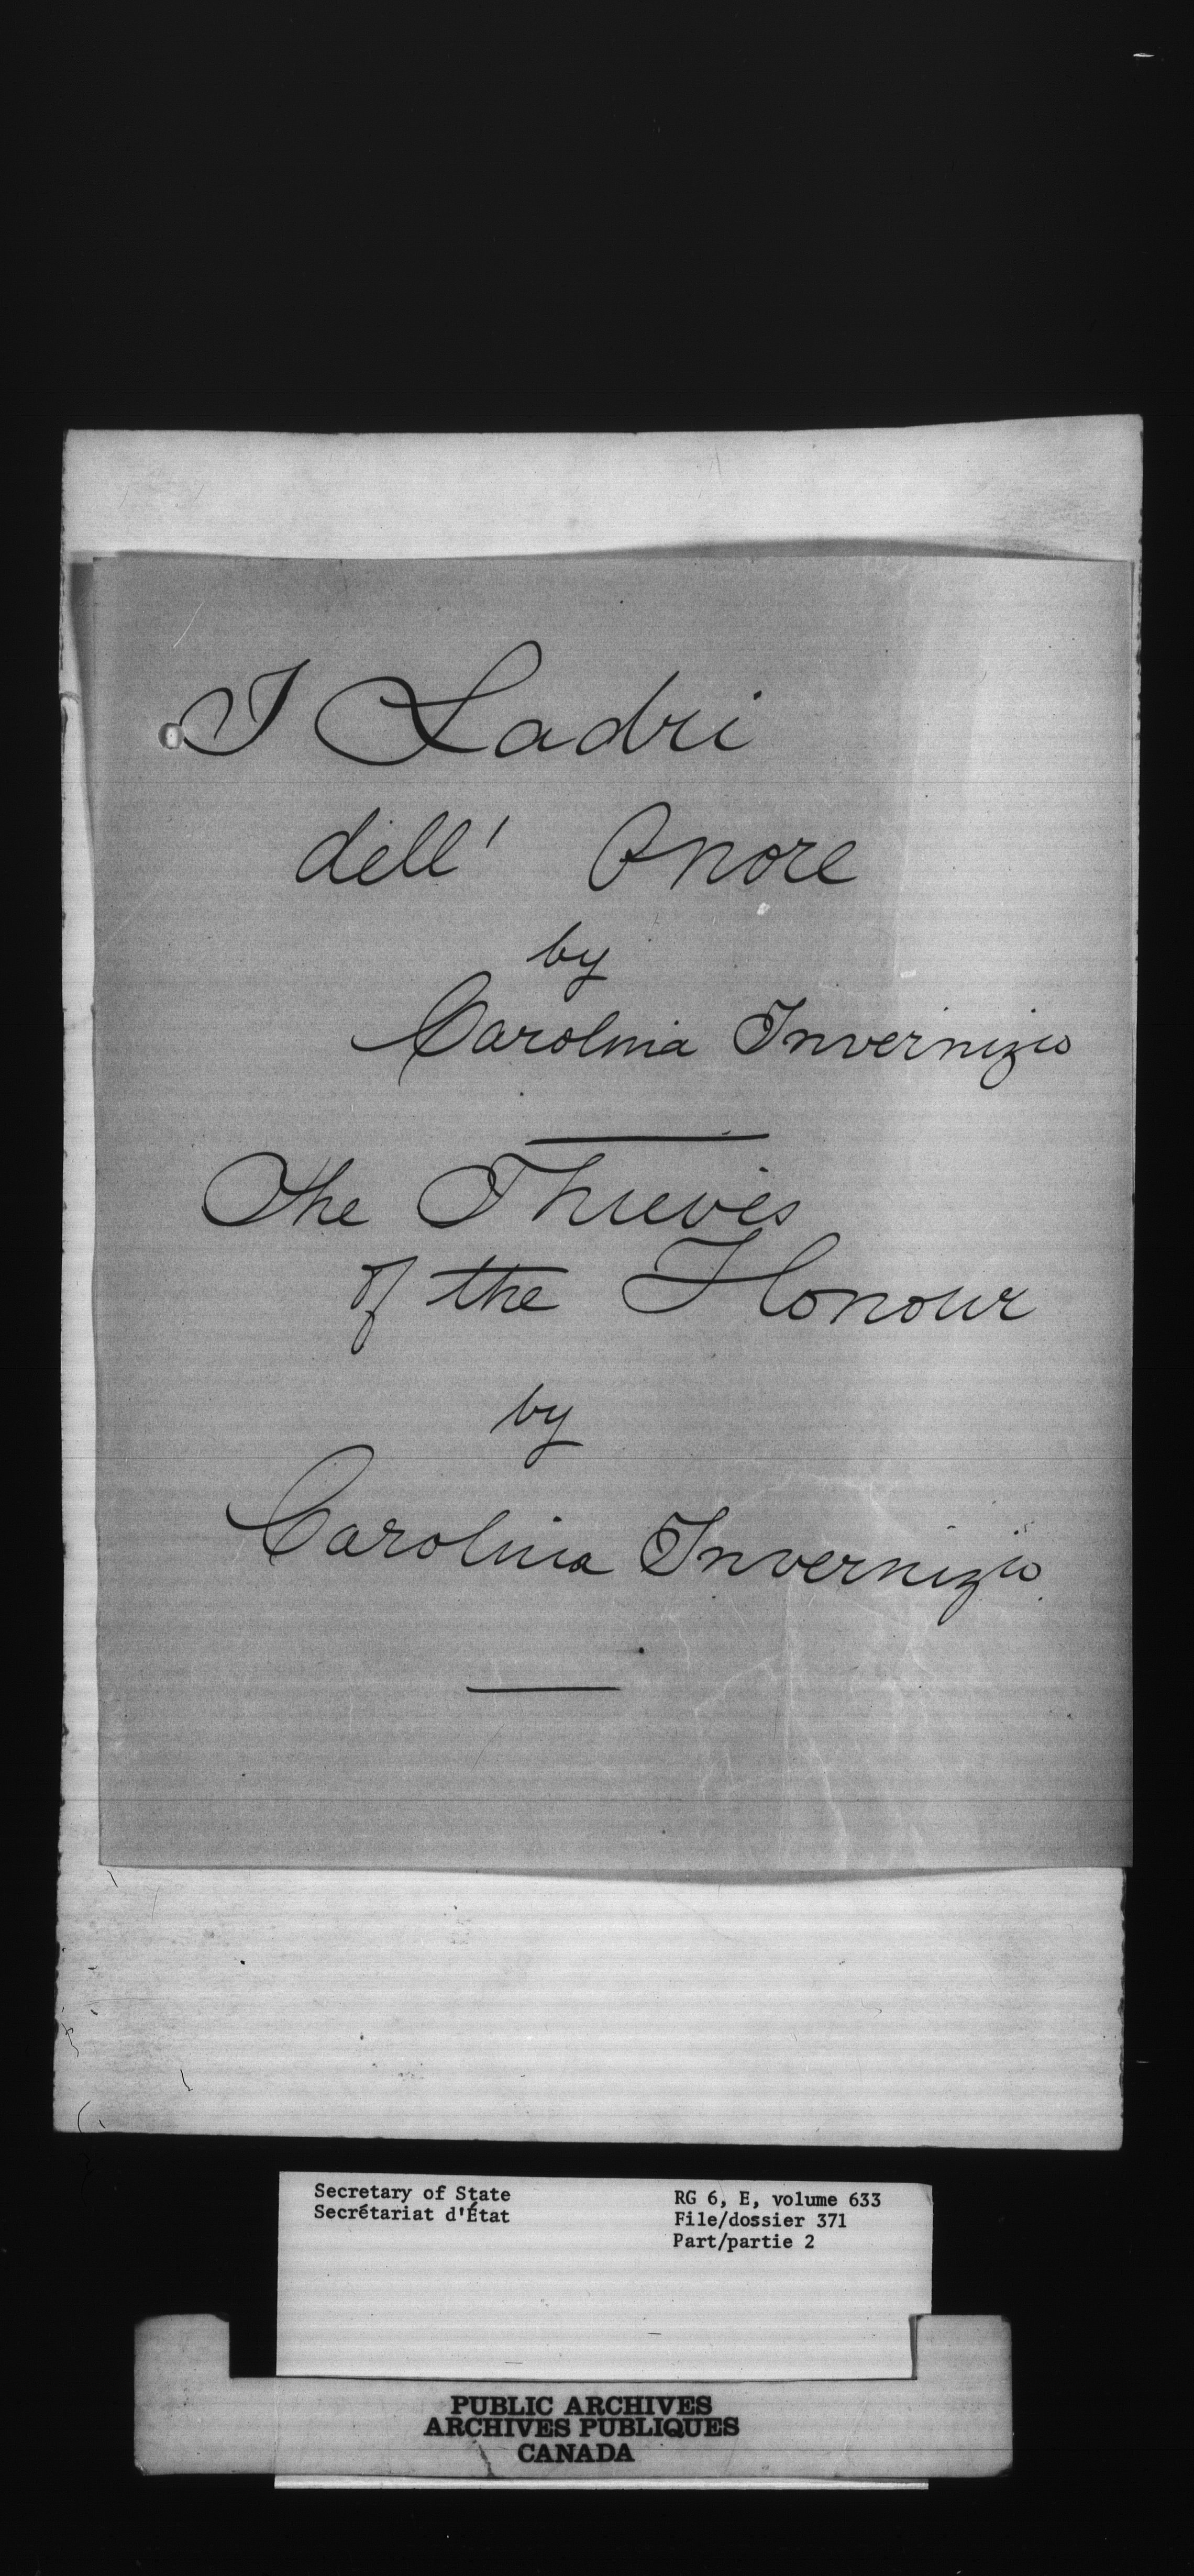 I Ladri
dell' Onore
by
Carolina Invernizio
The Thieves
of the Honour
by
Carolina Invernizio
Secretary of State
Secrétariat d'État
RG 6, E, volume 633
File/dossier 371
Part/partie 2
PUBLIC ARCHIVES
ARCHIVES PUBLIQUES
CANADA